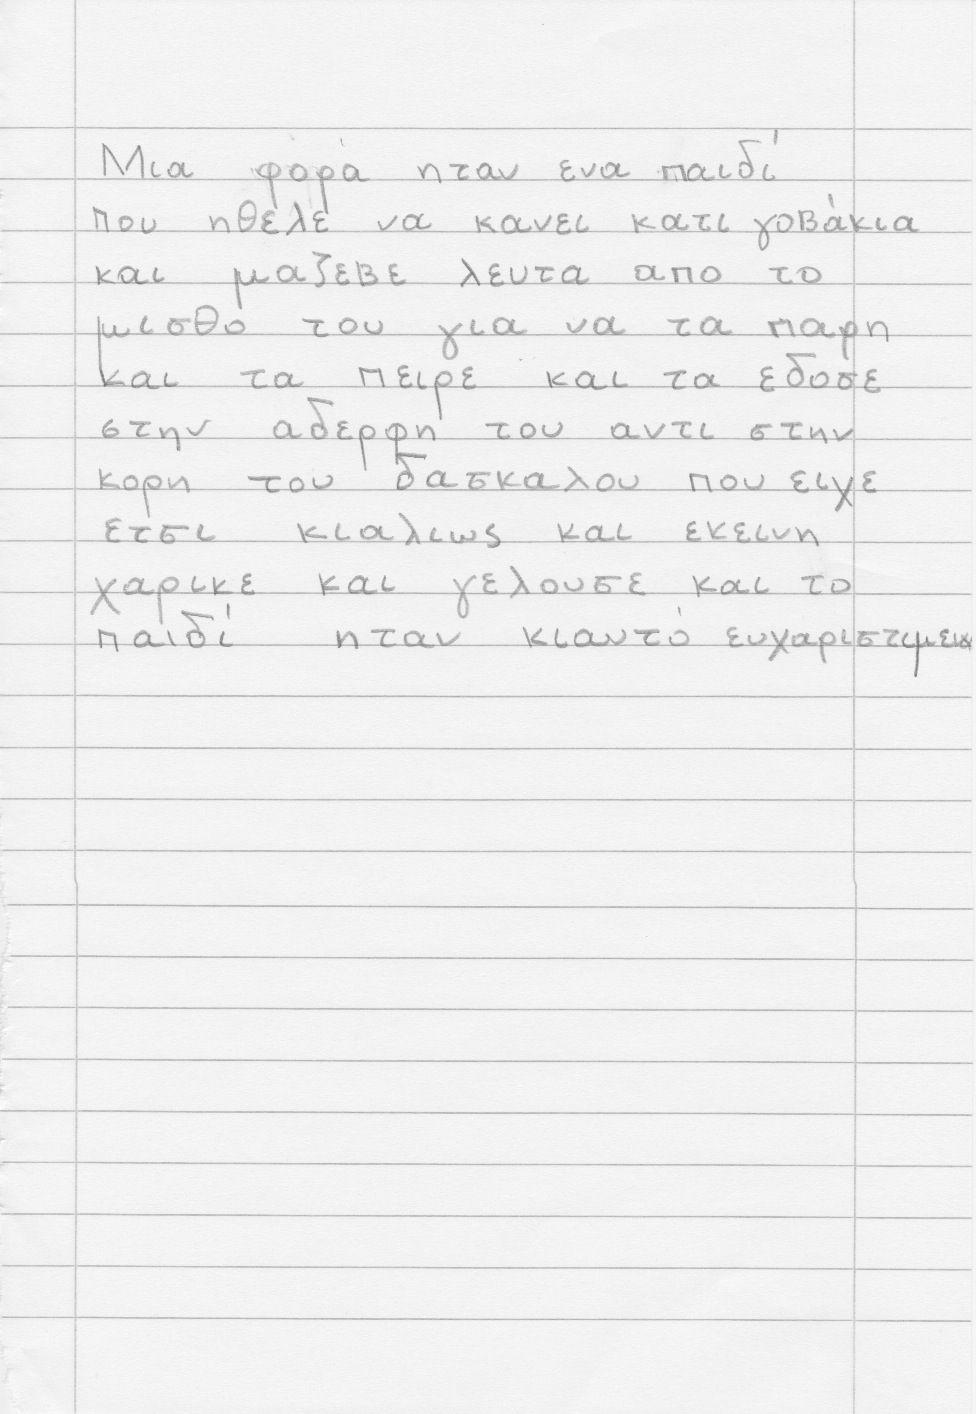 Μια φορά ηταν ενα παιδί
που ηθελε να κανει κατι γοβάκια
και μαζεβε λευτα απο το
μισθο του για να τα παρη
και τα πειρε και τα εδοσε
στην αδερφη του αντι στην
κορη του δασκαλου που ειχε
ετσι κιαλιως και εκεινη
χαρικε και γελουσε και το
παιδί ηταν κιαυτό